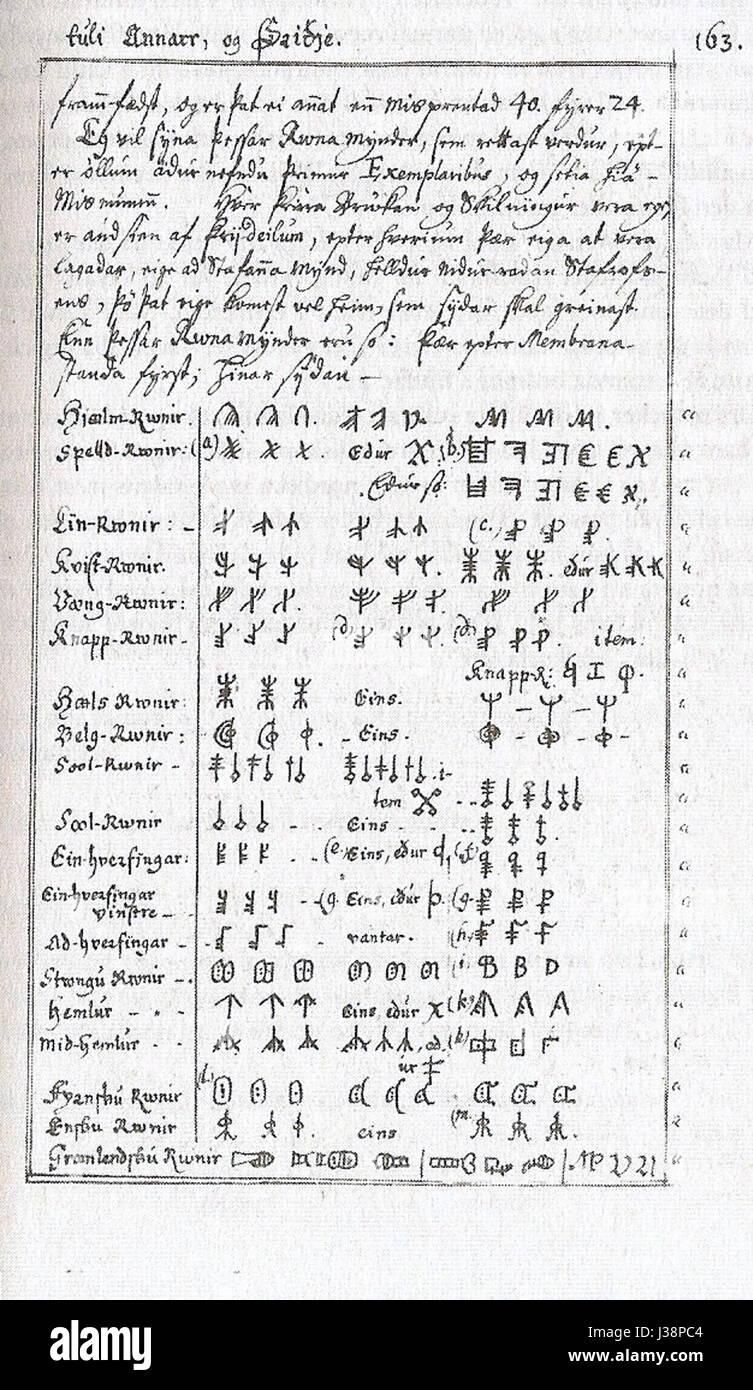 tuli Annarr, og Þridje. 163.
framm-fædst, og er þat ei annat enn misprentad 40. fyrer 24.
Eg vil syna þessar Rwna mynder, sem rettast verdur, ept-
er öllum ädur nefndu þrimur Exemplaribus, og setia hiä-
Mismuninn. og Skilningur vera
er af þrijdeilum, epter hverium þær eiga at vera
lagadar, eige ad Stafanna mynd, helldur nidur-radan Stafrofs-
ens, þö þat eige komest vel heim, sem sydar skal greinast.
Enn þessar Rwna mynder eru so: þær epter Membrana-
standa fyrst, hinar sydan -
Hiälm-Rwnir.
Spelld-Rwnir: (a) Edur (b)
Edur so:
Lin-Rwnir: - (c.)
Kvist-Rwnir. edur
Væng-Rwnir:
Knapp-Rwnir - (d) (d) item:
Knapp-R:
Hæls Rwnir: Eins.
Belg-Rwnir: - Eins.
Sool-Rwnir - i-
tem
Sool-Rwnir Eins
Ein-hverfingar: (e. Eins, edur (f.)
Ein-hverfingar
vinstre - (g. Eins, edur þ. (g.
Ad-hverfingar - vantar. (h.
Strwngu Rwnir -. (i.
Hemlur - - - Eins, edur (k)
Mid-Hemlur - - ed- (k)
ur
Fransku Rwnir (l.)
Ensku Rwnir eins (m.
Grænlendsku Rwnir
alamy
alamy
Image ID: J38PC4
www.alamy.com